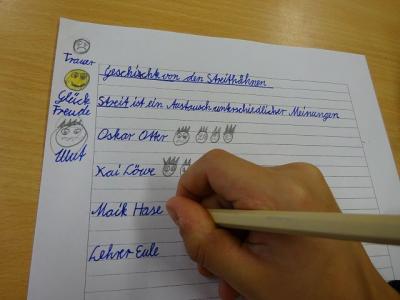 Trauer
Glück
Freude
Wut
Geschischte von den Streithähnen
Streit ist ein Austausch unterschiedlicher Meinungen
Oskar Otter
Kai Löwe
Maik Hase
Lehrer Eule